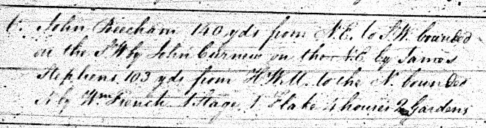 6. John Beecham 140 yds from N.E. to S.W. bounded
on the S.W by John Curnew on the N.E. by James
Stephens 103 yds from H.W.M. to the N. bounded
N by Wm French 1 Stage, 1 Flake 4 houses 2 Gardens